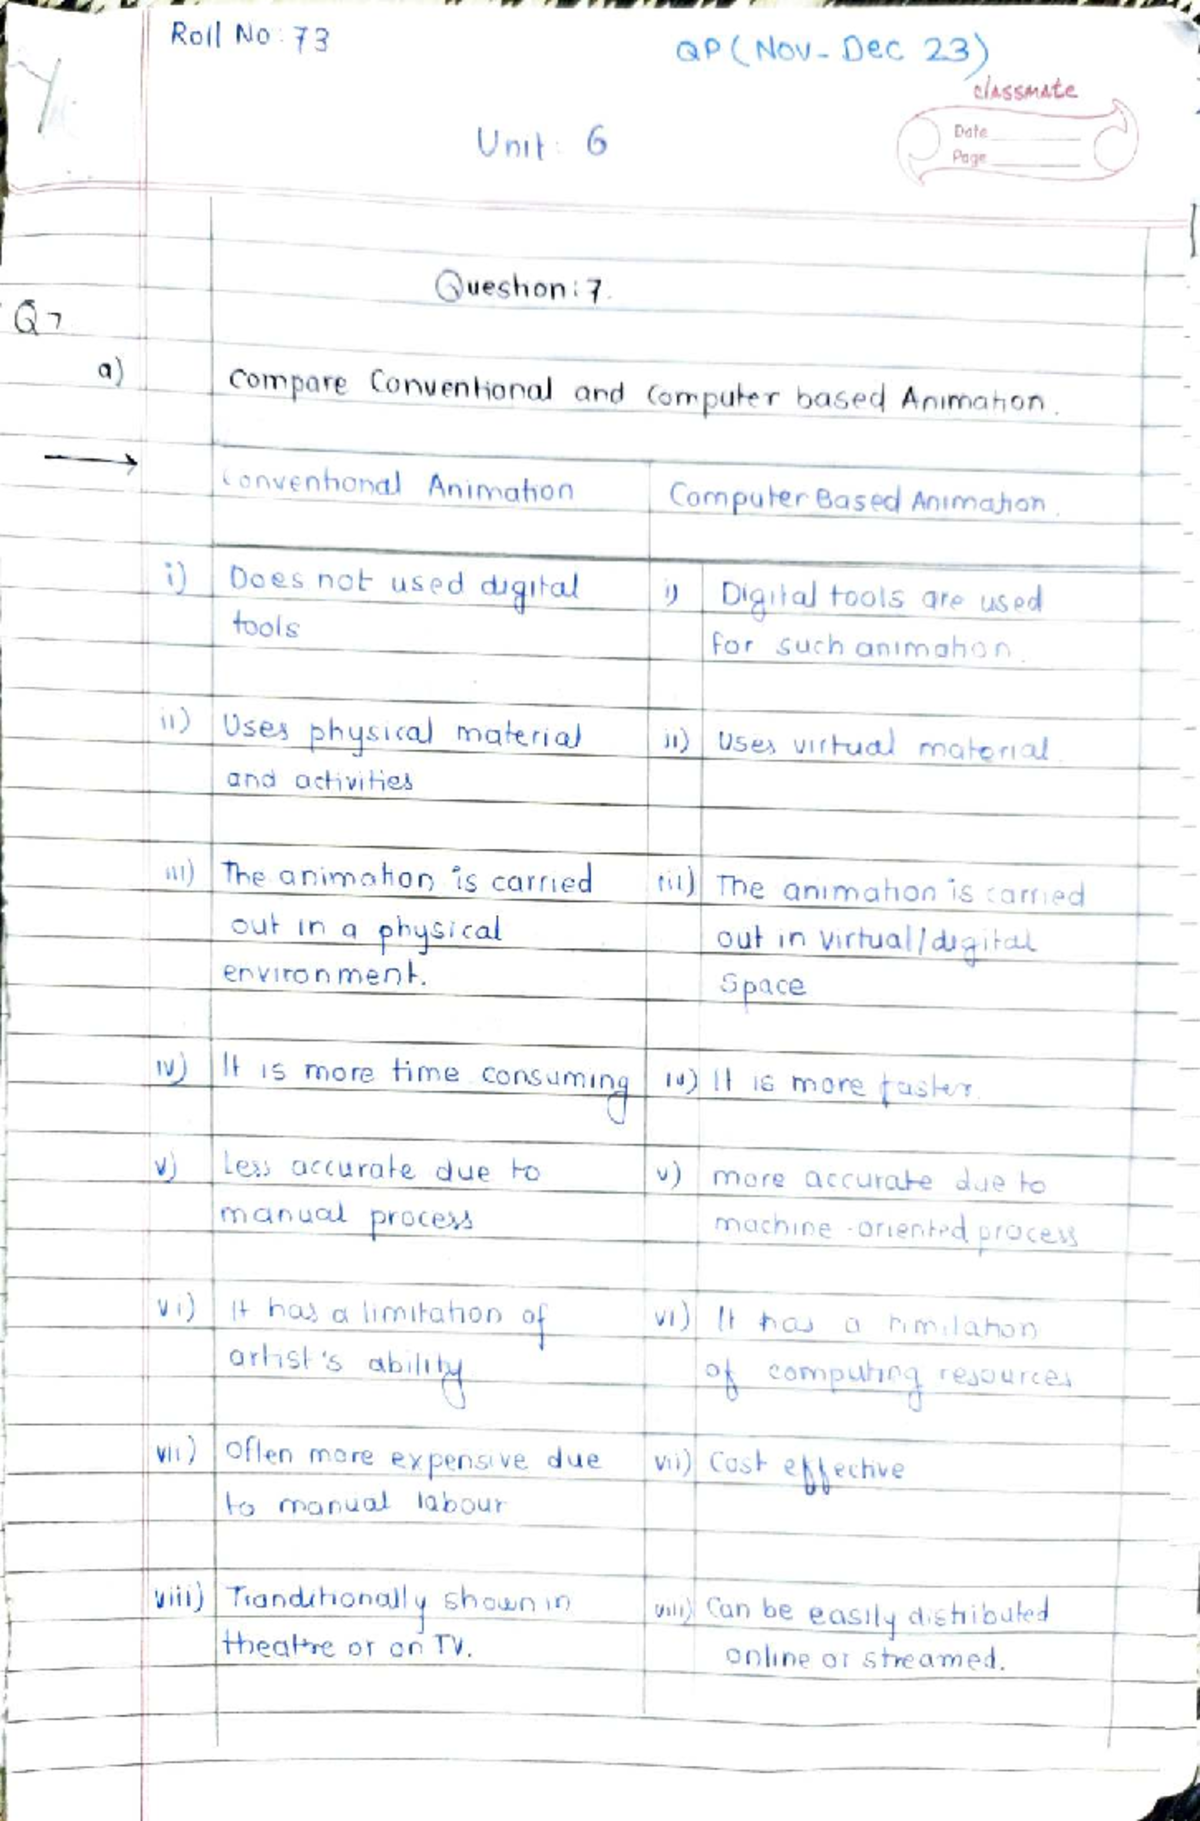 Roll No: 73
QP (Nov-Dec 23)
classmate
Date
Page
Unit: 6
Question: 7.
Q7
a) Compare Conventional and Computer based Animation.
Conventional Animation
Computer Based Animation.
i) Does not used digital
tools
i) Digital tools are used
for such animation.
ii) Uses physical material
and activities
ii) Uses virtual material
iii) The animation is carried
out in a physical
environment.
iii) The animation is carried
out in virtual/digital
Space
iv) It is more time consuming
iv) It is more faster.
v) Less accurate due to
manual process
v) more accurate due to
machine-oriented process
vi) It has a limitation of
artist's ability
vi) It has a limilation
of computing resources
vii) Often more expensive due
to manual labour
vii) Cost effective
viii) Tranditionally shown in
theatre or on TV.
viii) Can be easily distributed
online or streamed.